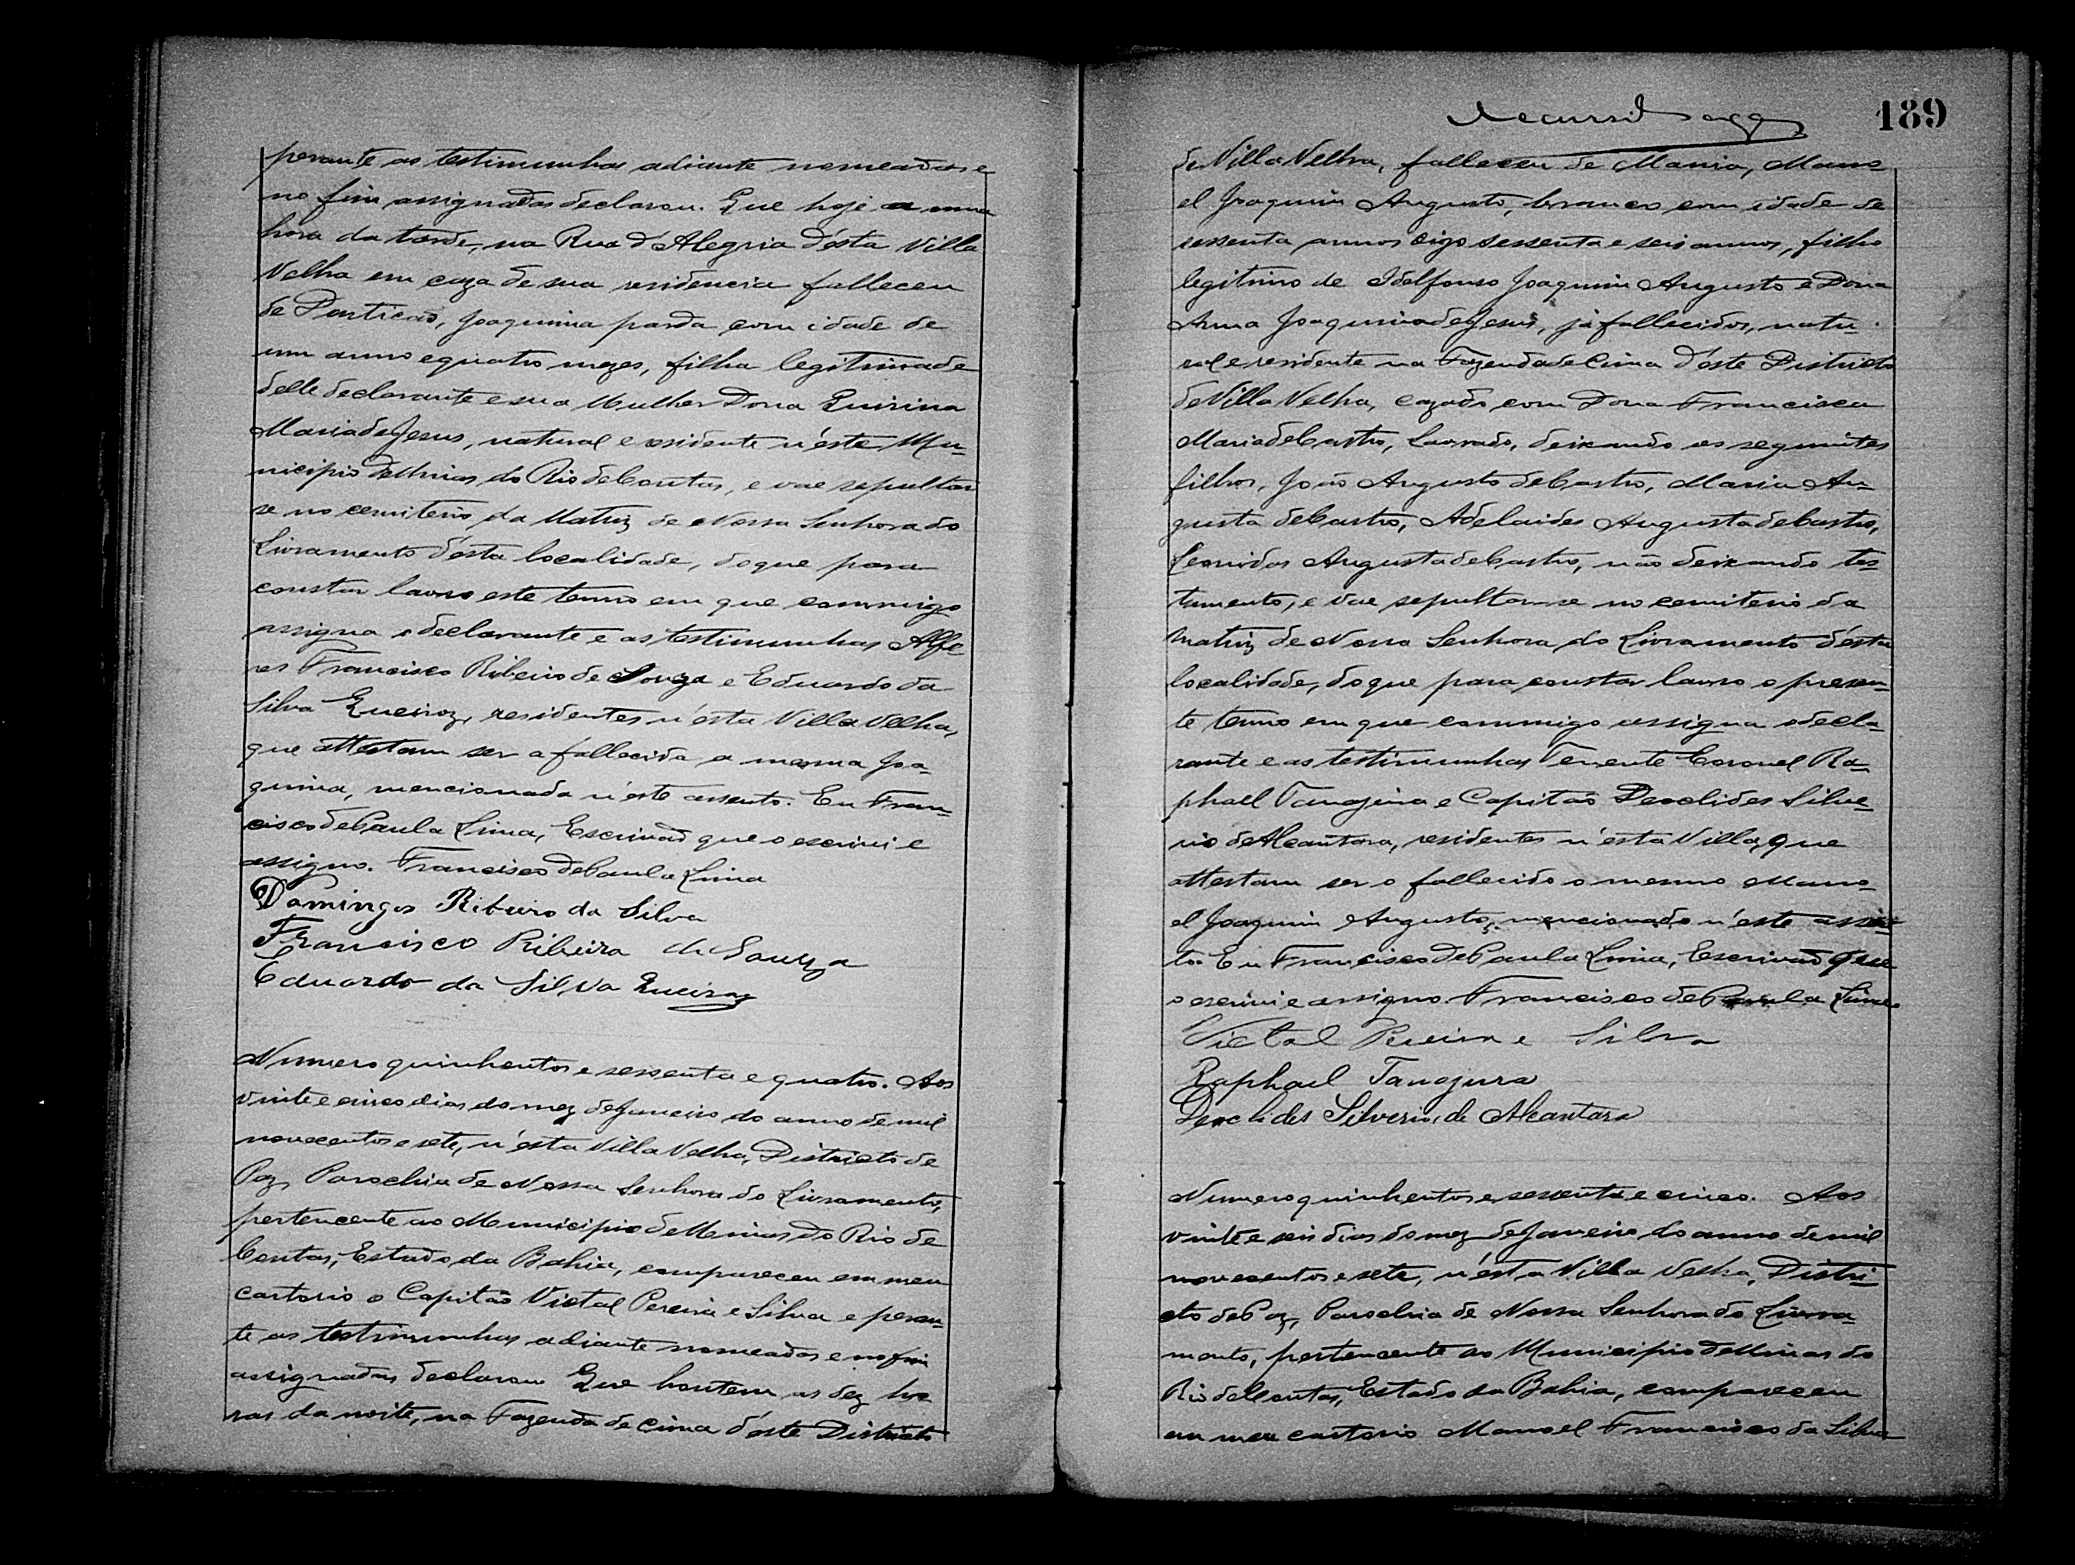 perante as testimunhas adiante nomeadas e
no fim assignadas declarou. Que hoje a uma
hora da tarde, na Rua d'Alegria d'ésta Villa
Velha em caza de sua residencia falleceu
de Denticaõ, Joaquina parda com idade de
um anno e quatro mezes, filha legitima de
delle declarante e sua Mulher Dona Quirina
Maria de Jesus, natural e residente n'éste Mu-
nicipio de Minas do Rio de Contas, e vae sepultar
se no cemiterio da Matriz de Nossa Senhora do
Livramento d'ésta localidade, do que para
constar lavro este termo em que commigo
assigna o declarante e as testimunhas Alfe-
res Francisco Ribeiro de Souza e Eduardo da
Silva Queiroz, residentes n'ésta Villa Velha,
que attestam ser a fallecida a mesma Joa-
quina, mencionada n'éste assento. Eu Fran-
cisco de Paula Lima, Escrivaõ que o escrivi e
assigno. Francisco de Paula Lima
Domingos Ribeiro da Silva
Francisco Ribeiro de Souza
Eduardo da Silva Queiroz
Numero quinhentos e sessenta e quatro. Aos
vinte e cinco dias do mez de Janeiro do anno de mil
novecentos e sete, n'ésta Villa Velha, Districto de
Paz, Parochia de Nossa Senhora do Livramento,
pertencente ao Municipio de Minas do Rio de
Contas, Estado da Bahia, compareceu em meu
cartorio o Capitaõ Victal Pereira e Silva e peran-
te as testimunhas adiante nomeadas e no fim
assignadas declarou Que hontem as dez ho-
ras da noite, na Fazenda de cima d'éste Districto
189
de Villa Velha, falleceu de Mania, Mano-
el Joaquim Augusto, branco com idade de
sessenta annos digo sessenta e seis annos, filho
legitimo de Idelfonso Joaquim Augusto e Dona
Anna Joaquina de Jesus, já fallecidos, natu-
ral e residente na Fazenda de Cima d'éste Districto
de Villa Velha, cazado com Dona Francisca
Maria de Castro, Lavrado, deixando os seguintes
filhos, João Augusto de Castro, Maria Au-
gusta de Castro, Adelaides Augusta de Castro,
Leonidas Augusta de Castro, não deixando tes-
tamento, e vae sepultar-se no cemiterio da
Matriz de Nossa Senhora do Livramento d'ésta
localidade, do que para constar lavro o presen-
te termo em que commigo assigna o decla-
rante e as testimunhas Tenente Coronel Ra-
phael Tanajura e Capitaõ Deoclides Silve-
rio de Alcantara, residentes n'ésta Villa, que
attestam ser o fallecido o mesmo Mano-
el Joaquim Augusto, mencionado n'éste assen-
to. Eu Francisco de Paula Lima, Escrivaõ que
o escrivi e assigno. Francisco de Paula Lima
Victal Pereira e Silva
Raphael Tanajura
Deoclides Silverio de Alcantara
Numero quinhentos e sessenta e cinco. Aos
vinte e seis dias do mez de Janeiro do anno de mil
novecentos e sete, n'ésta Villa Velha, Distri-
cto de Paz, Parochia de Nossa Senhora do Livra-
mento, pertencente ao Municipio de Minas do
Rio de Contas, Estado da Bahia, compareceu
em meu cartorio Manoel Francisco da Silva